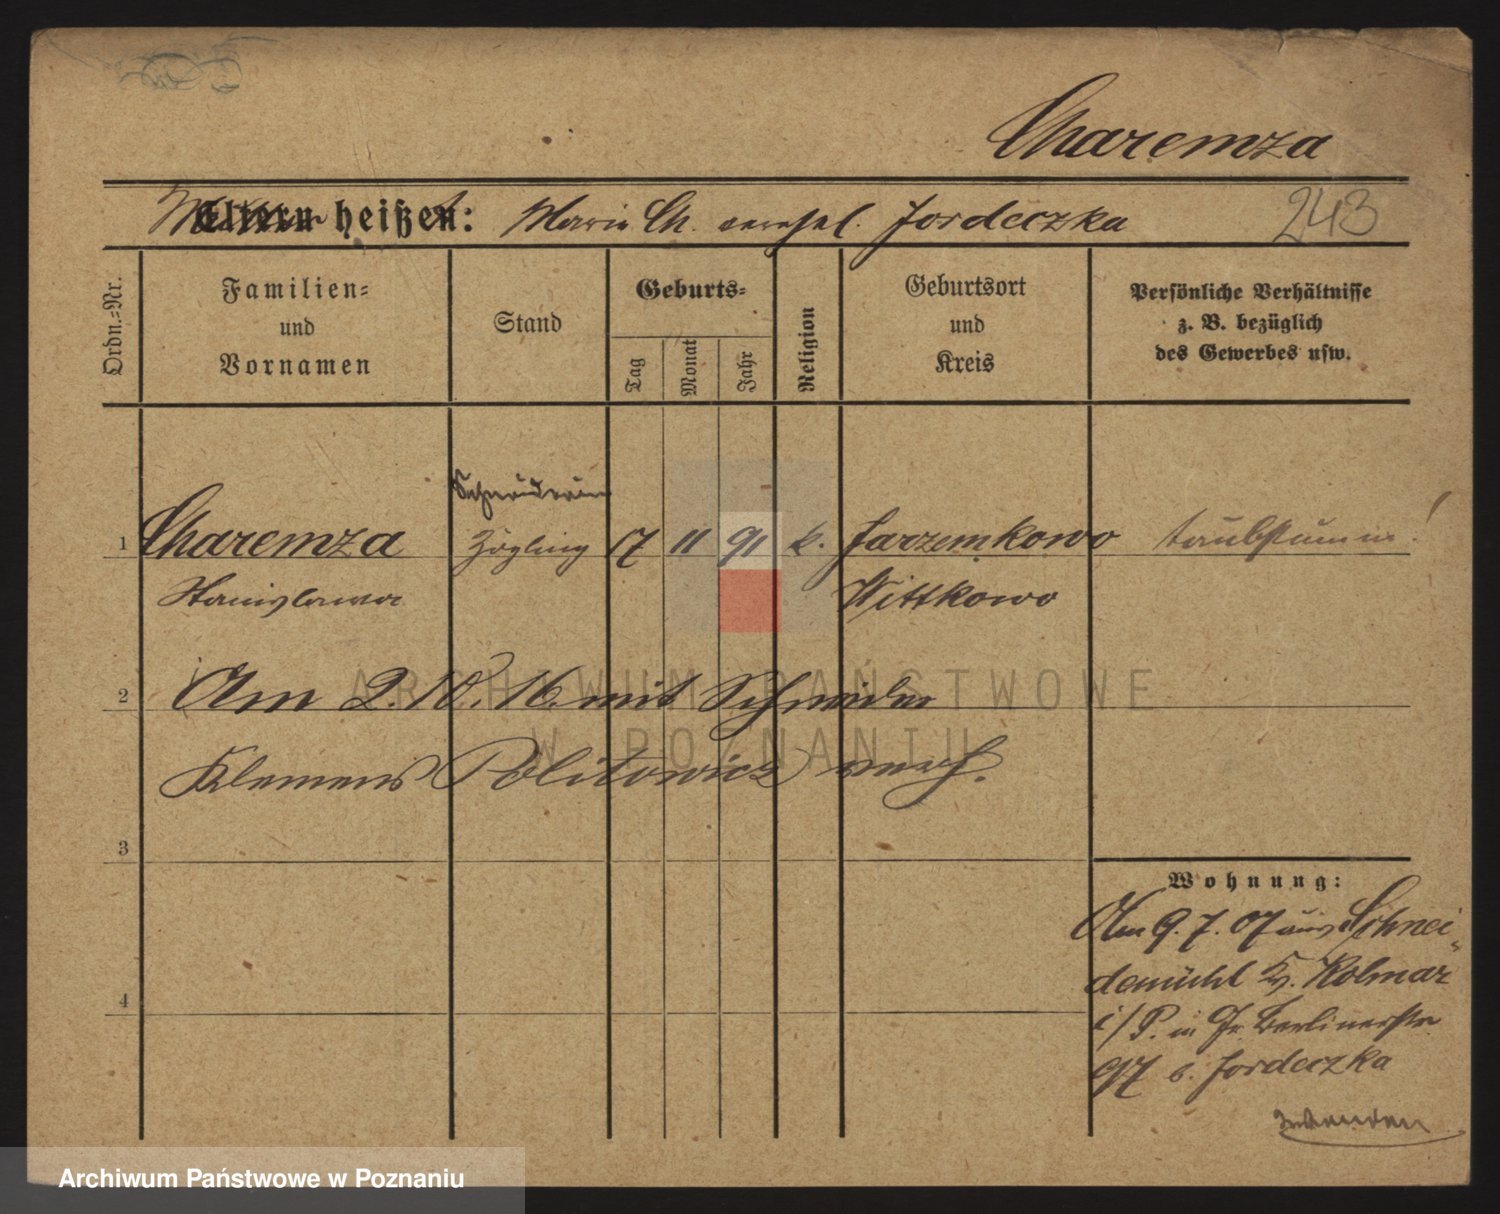 Charemza
Eltern heißen: Marie Ch. verehel. Jordeczka
243
Ordn.-Nr.
Familien-
und
Vornamen
Stand
Geburts-
Tag
Monat
Jahr
Religion
Geburtsort
und
Kreis
Persönliche Verhältnisse
z. B. bezüglich
des Gewerbes usw.
Schneiderin
1 Charemza Zögling 17 11 91 k. Jarzemkowo taubstumm!
Stanislawa Wittkowo
2 Am 2. 10. 16. mit Schneider
Klemens Politowicz verh.
3
Wohnung:
Am 9. 7. 07 aus Schnei-
demühl Kr. Kolmar
4
i/P. in Gr. Berlinerstr.
97 b. Jordeczka
wenden
ARCHIWUM PAŃSTWOWE
W POZNANIU
Archiwum Państwowe w Poznaniu